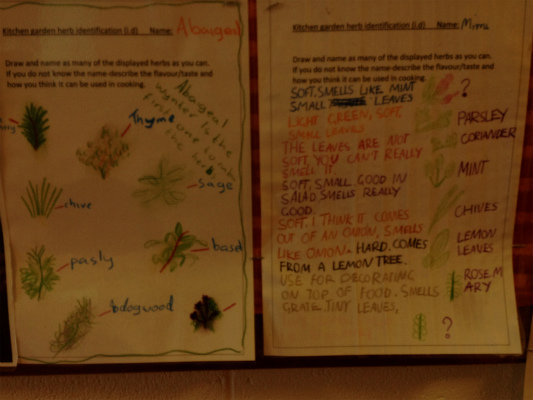 Kitchen garden herb identification (i.d) Name: Abaigeal
Draw and name as many of the displayed herbs as you can.
If you do not know the name-describe the flavour/taste and
how you think it can be used in cooking.
Thyme
sage
chive
basel
pasly
bdogwood
Kitchen garden herb identification (i.d) Name: Mimi
Draw and name as many of the displayed herbs as you can.
If you do not know the name-describe the flavour/taste and
how you think it can be used in cooking.
SOFT, SMELLS LIKE MINT
SMALL LEAVES
LIGHT GREEN, SOFT,
SMALL LEAVES
THE LEAVES ARE NOT
SOFT, YOU CAN'T REALLY
SMELL IT
SOFT, SMALL, GOOD IN
SALAD SMELLS REALLY
GOOD.
SOFT, I THINK IT COMES
OUT OF AN ONION, SMELLS
LIKE ONION. HARD. COMES
FROM A LEMON TREE.
USE FOR DECORATING
ON TOP OF FOOD. SMELLS
GRATE TINY LEAVES,
?
PARSLEY
CORIANDER
MINT
CHIVES
LEMON
LEAVES
ROSEM
ARY
?